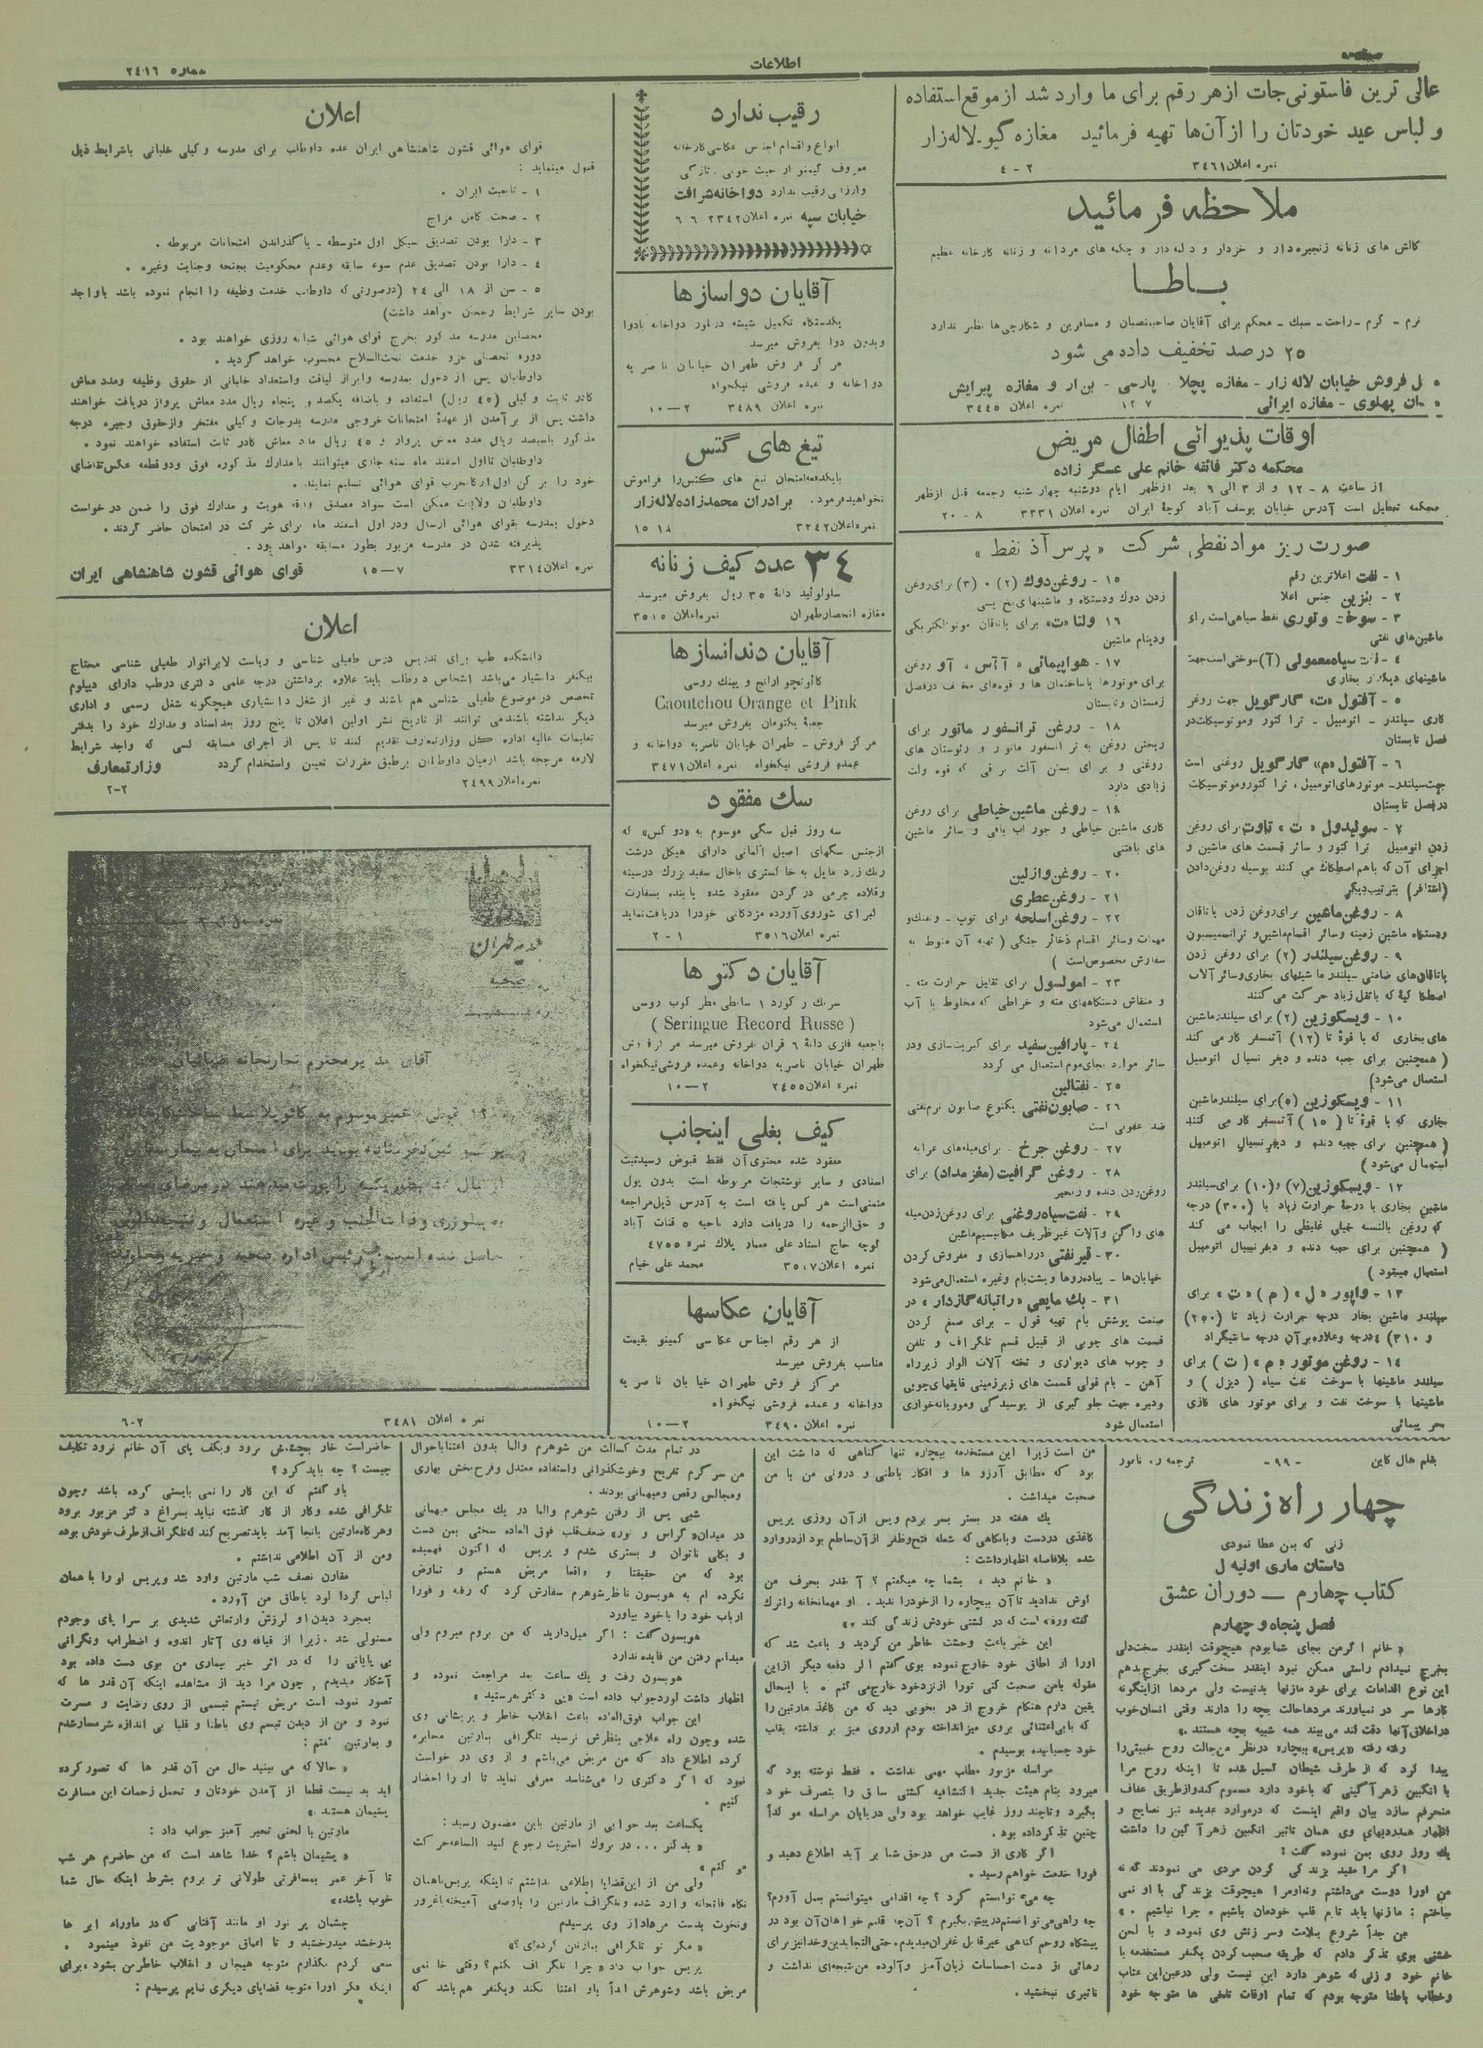 اطلاعات
شماره ۲۴۱۶
عالی ترین فاستونی‌جات از هر رقم برای ما وارد شد از موقع استفاده
و لباس عید خودتان را از آن‌ها تهیه فرمائید مغازه گیو لاله‌زار
نمره اعلان ۳۴۶۱ ۲ - ۴
ملاحظه فرمائید
گالش های زنانه زنجیره‌دار و خزدار و دکمه‌دار و چکمه های مردانه و زنانه کارخانه عظیم
باطا
نرم - گرم - راحت - سبك - محکم برای آقایان صاحبمنصبان و مسافرین و شکارچی‌ها نظیر ندارد
۲۵ درصد تخفیف داده می شود
محل فروش خیابان لاله زار - مغازه پچلا - پارسی - بن‌ار و مغازه پیرایش
خیابان پهلوی - مغازه ایرانی ۷ ۱۲ نمره اعلان ۳۴۴۵
اوقات پذیرائی اطفال مریض
محکمه دکتر فائقه خانم علی عسگر زاده
از ساعت ۸ - ۱۲ و از ۳ الی ۶ بعد از ظهر ایام دوشنبه چهار شنبه و جمعه قبل از ظهر
محکمه تعطیل است آدرس خیابان یوسف آباد کوچه ایران نمره اعلان ۳۳۳۱ ۸ - ۲۰
صورت ریز مواد نفطی شرکت « پرس آذ نفط »
۱ - نفت اعلاترین رقم
۲ - بنزین جنس اعلا
۳ - سوخت وتوری نفط سیاهی است برای
ماشین‌های نفتی
۴ - نفت سیاه معمولی (آ) سوختی است جهت
ماشینهای دیگ‌دار بخاری
۵ - آفتول «ت» گارگویل جهت روغن
کاری سیلندر - اتومبیل - تراکتور و موتوسیکلت در
فصل تابستان
۶ - آفتول «م» گارگویل روغنی است
جهت سیلندر - موتورهای اتومبیل ، تراکتور و موتوسیکلت
در فصل تابستان
۷ - سولیدول « ت » تاوت برای روغن
زدن اتومبیل تراکتور و سائر قسمت های ماشین و
اجزای آن که باهم اصطکاك می کنند بوسیله روغن‌دادن
(اشتافر) بترتیب دیگر
۸ - روغن ماشین برای روغن زدن یاتاقان
و دستگاه ماشین زمینه و سائر اقسام ماشین و ترانسمیسیون
۹ - روغن سیلندر (۲) برای روغن زدن
یاتاقان‌های ضامنی سیلندر ماشینهای بخاری و سائر آلات
اصطکاکیه که با ثقل زیاد حرکت می کنند
۱۰ - ویسکوزین (۲) برای سیلندر ماشین
های بخاری که با قوهٔ تا (۱۲) آتمسفر کار می کند
( همچنین برای جعبه دنده و دیفرنسیال اتومبیل
استعمال می‌شود)
۱۱ - ویسکوزین (۵) برای سیلندر ماشین
بخاری که با قوهٔ تا (۱۵) آتمسفر کار می کنند
( همچنین برای جعبه دنده و دیفرنسیال اتومبیل
استعمال می‌شود )
۱۲ - ویسکوزین (۷) و (۱۰) برای سیلندر
ماشین بخاری با درجهٔ حرارت زیاد با (۳۰۰) درجه
که روغن بالنسبه خیلی غلیظی را ایجاب می کند
( همچنین برای جعبه دنده و دیفرنسیال اتومبیل
استعمال میشود )
۱۳ - واپور « ل » ( م ) « ت » برای
سیلندر ماشین بخار درجه حرارت زیاد تا (۲۵۰)
و ۳۱۰) درجه و علاوه بر آن درجه سانتیگراد
۱۴ - روغن موتور « م » ( ت ) برای
سیلندر ماشینها با سوخت نفت سیاه ( دیزل ) و
ماشینها با سوخت نفت و برای موتور های گازی
بحر پیمائی
۱۵ - روغن دوك (۲) ، (۳) برای روغن
زدن دوك و دستگاه و ماشینهای نخ ریسی
۱۶ ولتا «ت» برای یاتاقان موتو الکتریکی
و دینام ماشین
۱۷ - هواپیمائی « آآس ، آو روغن
برای موتورها با ساختمان ها و قوه‌های مختلف در فصل
زمستان و تابستان
۱۸ - روغن ترانسفور ماتور برای
ریختن روغن به ترانسفور ماتور و رئوستان های
روغنی و برای بستن آلت برقی که قوه ولت
زیادی دارد
۱۸ - روغن ماشین خیاطی برای روغن
کاری ماشین خیاطی و جوراب بافی و سائر ماشین
های بافتنی
۲۰ - روغن وازلین
۲۱ - روغن عطری
۲۲ - روغن اسلحه برای توپ - و تفنگ و
مهمات و سائر اقسام ذخائر جنگی ( تهیه آن منوط به
سفارش مخصوص است )
۲۳ - امولسول برای تقلیل حرارت مته -
و منقاش دستگاههای مته و خراطی که مخلوط با آب
استعمال می‌شود
۲۴ - پارافین سفید برای کبریت‌سازی و در
سائر موارد بجای موم استعمال می گردد
۲۵ - نفتالین
۲۶ - صابون نفتی یکنوع صابون نرم نفتی
ضد عفونی است
۲۷ - روغن چرخ - برای میله‌های عرابه
۲۸ - روغن گرافیت (مغز مداد) برای
روغن‌زدن دنده و زنجیر
۲۹ - نفت سیاه روغنی برای روغن‌زدن میله
های واگن و آلات غیر ظریف مکانیسم ماشین
۳۰ - قیر نفتی در راهسازی و مفروش کردن
خیابان‌ها - پیاده‌روها و پشت‌بام وغیره استعمال می‌شود
۳۱ - بك مایعی « راتبانه گازدار » در
صنعت پوشش بام تهیه قول - برای صمغ کردن
قسمت های چوبی از قبیل قسم تلگراف و تلفن
و چوب های دیواری و تخته آلات الوار زیر راه
آهن - بام قولی قسمت های زیرزمینی قایقهای‌چوبی
وغیره جهت جلوگیری از پوسیدگی و موریانه‌خواری
استعمال شود
رقیب ندارد
انواع و اقسام اجناس عکاسی کارخانه
معروف گیمنو از حیث خوبی و تازگی
و ارزانی رقیب ندارد دواخانه شرافت
خیابان سپه نمره اعلان ۲۳۴۲ ۶ ۶
آقایان دواسازها
یکدستگاه تکمیل شیشه در لور دواخانه بادوا
و بدون دوا بفروش میرسد
مرکز فروش طهران خیابان ناصریه
دواخانه و عمده فروشی نیکخواه
نمره اعلان ۳۴۸۹ ۲ - ۱۰
تیغ های گتس
بایکدفعه امتحان تیغ های گتس را فراموش
نخواهید فرمود. برادران محمدزاده لاله‌زار
نمره اعلان ۳۲۴۲ ۱۸ ۱۵
۳۴ عدد کیف زنانه
سلولوئید دانهٔ ۳۵ ریال بفروش میرسد
مغازه انحصار طهران نمره اعلان ۳۵۱۵
آقایان دندانسازها
کائوتچو ارانج و پینك روسی
Caoutchou Orange et Pink
جعبهٔ یکتومان بفروش میرسد
مرکز فروش - طهران خیابان ناصریه دواخانه و
عمده فروشی نیکخواه نمره اعلان ۳۴۷۱
سك مفقود
سه روز قبل سگی موسوم به «دوکس» که
از جنس سگهای اصیل آلمانی دارای هیکل درشت
رنك زرد مایل به خاکستری باخال سفید بزرك در سینه
و قلاده چرمی در گردن مفقود شده یابنده بسفارت
کبرای شوروی آورده مژدگانی خود را دریافت نماید
نمره اعلان ۳۵۱۶ ۱ - ۲
آقایان دکتر ها
سرنك رکورد ۱ سانطی مطر کوب روسی
( Seringue Record Russe )
باجعبه فلزی دانهٔ ۶ قران بفروش میرسد مرکز فروش
طهران خیابان ناصریه دواخانه و عمده فروشی نیکخواه
نمره اعلان ۲۴۵۵ ۲ - ۱۰
کیف بغلی اینجانب
مفقود شده محتوی آن فقط قبوض رسید ثبت
اسنادی و سایر نوشتجات مربوطه است بدون پول
متمنی است هر کس یافته است به آدرس ذیل مراجعه
و حق‌الزحمه را دریافت دارد ناحیه ۵ قنات آباد
کوچه حاج استاد علی معمار پلاك نمره ۴۷۵۵
نمره اعلان ۳۵۱۷ محمد علی خیام
آقایان عکاسها
از هر رقم اجناس عکاسی گمینو بقیمت
مناسب بفروش میرسد
مرکز فروش طهران خیابان ناصریه
دواخانه و عمده فروشی نیکخواه
نمره اعلان ۳۴۹۰ ۲ - ۱۰
اعلان
قوای هوائی قشون شاهنشاهی ایران عده داوطلب برای مدرسه وکیلی خلبانی باشرایط ذیل
قبول مینماید :
۱ - تابعیت ایران .
۲ - صحت کامل مزاج
۳ - دارا بودن تصدیق سیکل اول متوسطه - یا گذراندن امتحانات مربوطه .
۴ - دارا بودن تصدیق عدم سوء سابقه وعدم محکومیت بجنحه وجنایت وغیره .
۵ - سن از ۱۸ الی ۲۴ (درصورتی که داوطلب خدمت وظیفه را انجام نموده باشد باواجد
بودن سایر شرایط رجحان خواهد داشت)
محصلین مدرسه مذکور بخرج قوای هوائی شبانه روزی خواهند بود .
دوره تحصیلی جزو خدمت تحت‌السلاح محسوب خواهد گردید .
داوطلبان پس از دخول بمدرسه و ابراز لیاقت واستعداد خلبانی از حقوق وظیفه ومدد معاش
کادر ثابت وکیلی (۴۵ ریال) استفاده و باضافه یکصد و پنجاه ریال مدد معاش پرواز دریافت خواهند
داشت پس از بر آمدن از عهدهٔ امتحانات خروجی مدرسه بدرجات وکیلی مفتخر وازحقوق وجیره درجه
مذکور باسیصد ریال مدد معاش پرواز و ۴۵ ریال مدد معاش کادر ثابت استفاده خواهند نمود .
داوطلبان تا اول اسفند ماه سنه جاری میتوانند با مدارك مذکوره فوق و دو قطعه عکس تقاضای
خود را برکن اول ارکانحرب قوای هوائی تسلیم نمایند.
داوطلبان ولایات ممکن است سواد مصدق ورقه هویت و مدارك فوق را ضمن درخواست
دخول بمدرسه بقوای هوائی ارسال ودر اول اسفند ماه برای شرکت در امتحان حاضر گردند .
پذیرفته شدن در مدرسه مزبور بطور مسابقه خواهد بود .
نمره اعلان ۳۳۱۴ ۷ - ۱۵ قوای هوائی قشون شاهنشاهی ایران
اعلان
دانشکده طب برای تدریس درس طفیلی شناسی و ریاست لابراتوار طفیلی شناسی محتاج
بیکنفر دانشیار می‌باشد اشخاص داوطلب باید علاوه برداشتن درجه علمی دکتری در طب دارای دیپلوم
تخصص در موضوع طفیلی شناسی هم باشند و غیر از شغل دانشیاری هیچگونه شغل رسمی و اداری
دیگر نداشته باشند می توانند از تاریخ نشر اولین اعلان تا پنج روز بعد اسناد و مدارك خود را بدفتر
تعلیمات عالیه اداره کل وزارت معارف تقدیم کنند تا پس از اجرای مسابقه کسی که واجد شرایط
لازمه مرجحه باشد از میان داوطلبان برطبق مقررات تعیین واستخدام گردد وزارت معارف
نمره اعلان ۲۴۹۹ ۲-۲
بلدیه طهران
صحیه
آقای مدیر محترم تجارتخانه ضرابیان
نمره اعلان ۳۴۸۱ ۲-۶
بقلم هال کاین - ۹۹ - ترجمه ر. نامور
چهار راه زندگی
زنی که بمن عطا نمودی
داستان ماری اونیه ل
کتاب چهارم — دوران عشق
فصل پنجاه و چهارم
« خانم اگر من بجای شما بودم هیچوقت اینقدر سخت‌دلی
بخرج نمیدادم راستی ممکن نبود اینقدر سخت گیری بخرج بدهم
این نوع اقدامات برای خود مازنها بدنیست ولی مردها ازاینگونه
کارها سر در نمیاورند مردها حالت بچه را دارند وقتی انسان خوب
در اخلاق آنها دقت کند می بیند همه شبیه بچه هستند .»
رفته رفته «پریس» بیچاره در نظر من حالت روح خبیثی را
پیدا کرد که از طرف شیطان گسیل شده تا اینکه روح مرا
با انگبین زهرآگینی که باخود دارد مسموم کند و از طریق عفاف
منحرفم سازد بیان واقع اینست که درموارد عدیده نیز نصایح و
اظهار همدردیهای وی همان تاثیر انگبین زهر آگین را داشت
یك روز روی بمن نموده گفت :
اگر مرا مقید بزندگی کردن مردی می نمودند که نه
من اورا دوست می‌داشتم و نه او مرا هیچوقت بزندگی با او نمی
ساختم : مازنها باید تابع قلب خودمان باشیم . چرا نباشیم . »
من جداً شروع بملامت وسرزنش وی نموده و با لحن
خشنی بوی تذکر دادم که طریقه صحبت کردن یکنفر مستخدمه با
خانم خود و زنی که شوهر دارد این نیست ولی در عین این عتاب
و خطاب باطناً متوجه بودم که تمام اوقات تلخی ها متوجه خود
من است زیرا این مستخدمه بیچاره تنها گناهی که داشت این
بود که مطابق آرزو ها و افکار باطنی و درونی من با من
صحبت میداشت .
یك هفته در بستر بسر بردم وپس از آن روزی پریس
کاغذی دردست وبانگاهی که شعله فتح‌وظفر از آن ساطع بود ازدر وارد
شده بلافاصله اظهارداشت :
« خانم دید ، بشما چه میگفتم ؟ آنقدر بحرف من
گوش ندادید تا آن بیچاره را از خود راندید . او مهمانخانه را ترك
گفته و رفته است که در کشتی خودش زندگی کند »
این خبر باعث وحشت خاطر من گردید و باعث شد که
اورا از اطاق خود خارج نموده بوی گفتم اگر دفعه دیگر ازاین
مقوله بامن صحبت کنی تورا از نزدخود خارج می کنم . با اینحال
یقین دارم هنگام خروج از در بخوبی دید که من کاغذ مارتین را
که بابی‌اعتنائی بروی میز انداخته بودم از روی میز بر داشته بقلب
خود چسبانیده بوسیدم .
مراسله مزبور مطلب مهمی نداشت . فقط نوشته بود که
میرود بنام هیئت جدید اکتشافیه کشتی سابق را بتصرف خود
بگیرد و تا چند روز غایب خواهد بود ولی در پایان مراسله مؤکداً
چنین تذکر داده بود .
اگر کاری از دست من در حق شما بر آید اطلاع دهید و
فورا خدمت خواهم رسید .
چه می توانستم کرد ؟ چه اقدامی میتوانستم بعمل آورم؟
چه راهی می توانستم درپیش بگیرم ؟ آن چه قلبم خواهان آن بود در
پیشگاه روحم گناهی غیر قابل غفران میدیدم . حتی التجا بدین و خدا نیز برای
رهائی از دست احساسات زیان‌آمیز و آلوده من نتیجه‌ای نداشت و
تاثیری نبخشید .
در تمام مدت کسالت من شوهرم و آلما بدون اعتنا باحوال
من سرگرم تفریح وخوشگذرانی واستفاده معتدل وفرح‌بخش بهاری
ومجالس رقص ومیهمانی بودند .
شبی پس از رفتن شوهرم وآلما در یك مجلس میهمانی
در میدان «گراس و نور» ضعف قلب فوق العاده سختی بمن دست
و بکلی ناتوان و بستری شدم و پریس که اکنون فهمیده
بود که من حقیقتا و واقعا مریض هستم و تمارض
نکرده ام به هوبسون ناظر شوهرم سفارش کرد که رفته و فورا
ارباب خود را باخود بیاورد
هوبسون گفت : اگر میل‌دارید که من بروم میروم ولی
میدانم رفتن من فایده ندارد
هوبسون رفت و یك ساعت بعد مراجعت نموده و
اظهار داشت لرد جواب داده است «پی دکتر بفرستید »
این جواب فوق العاده باعث انقلاب خاطر و پریشانی وی
شده وچون راه علاجی بنظرش نرسید تلگرافی بمارتین مخابره
کرده اطلاع داد که من مریض می‌باشم و از وی در خواست
نمود که اگر دکتری را می‌شناسد معرفی نماید تا او را احضار
کنیم .
یکساعت بعد جوابی از مارتین باین مضمون رسید :
« بدکتر ... در بروك استریت رجوع کنید الساعه حرکت
می کنم »
ولی من از این قضایا اطلاعی نداشتم تا اینکه پریس ناگهان
نگاه فاتحانه وارد شده وتلگراف مارتین را باوضعی آمیخته باغرور
ونخوت بدست من داد از وی پرسیدم
« مگر تو تلگرافی بمارتین کرده‌ای ؟»
پریس جواب داد «چرا تلگراف نکنم؟ وقتی خانمی
مریض باشد وشوهرش ابداً باو اعتنا نکند ویکنفر هم باشد که
حاضراست خار بچشمش برود وبکف پای آن خانم نرود تکلیف
چیست ؟ چه باید کرد ؟
باو گفتم که این کار را نمی بایستی کرده باشد وچون
تلگرافی شده وکار از کار گذشته نباید بسراغ دکتر مزبور برود
وهرگاه مارتین بانجا آمد باید تصریح کند که تلگراف از طرف خودش بوده
ومن از آن اطلاعی نداشتم .
مقارن نصف شب مارتین وارد شد وپریس اورا با همان
لباس گردآلود باطاق من آورد .
بمجرد دیدن او لرزش وارتعاش شدیدی بر سراپای وجودم
مستولی شد . زیرا از قیافه وی آثار اندوه و اضطراب ونگرانی
بی پایانی را که در اثر خبر بیماری من بوی دست داده بود
آشکار میدیدم ، چون مرا دید از مشاهده اینکه آن قدر ها که
تصور نموده است مریض نیستم تبسمی از روی رضایت و مسرت
نمود و من از دیدن تبسم وی باطنا و قلبا بی اندازه شرمسار شدم
و بمارتین گفتم :
« حالا که می بینید حال من آن قدر ها که تصور کرده
اید بد نیست قطعا از آمدن خودتان و تحمل زحمات این مسافرت
پشیمان هستید .»
مارتین با لحنی تحیر آمیز جواب داد :
« پشیمان باشم ؟ خدا شاهد است که من حاضرم هر شب
تا آخر عمر بمسافرتی طولانی تر بروم بشرط اینکه حال شما
خوب باشد.»
چشمان پر نور او مانند آفتابی که در ماوراء ابر ها
بدرخشد میدرخشید و تا اعماق موجودیت من نفوذ مینمود .
سعی کردم نگذارم متوجه هیجان و انقلاب خاطر من بشود ، برای
اینکه فکر اورا متوجه قضایای دیگری نمایم پرسیدم :